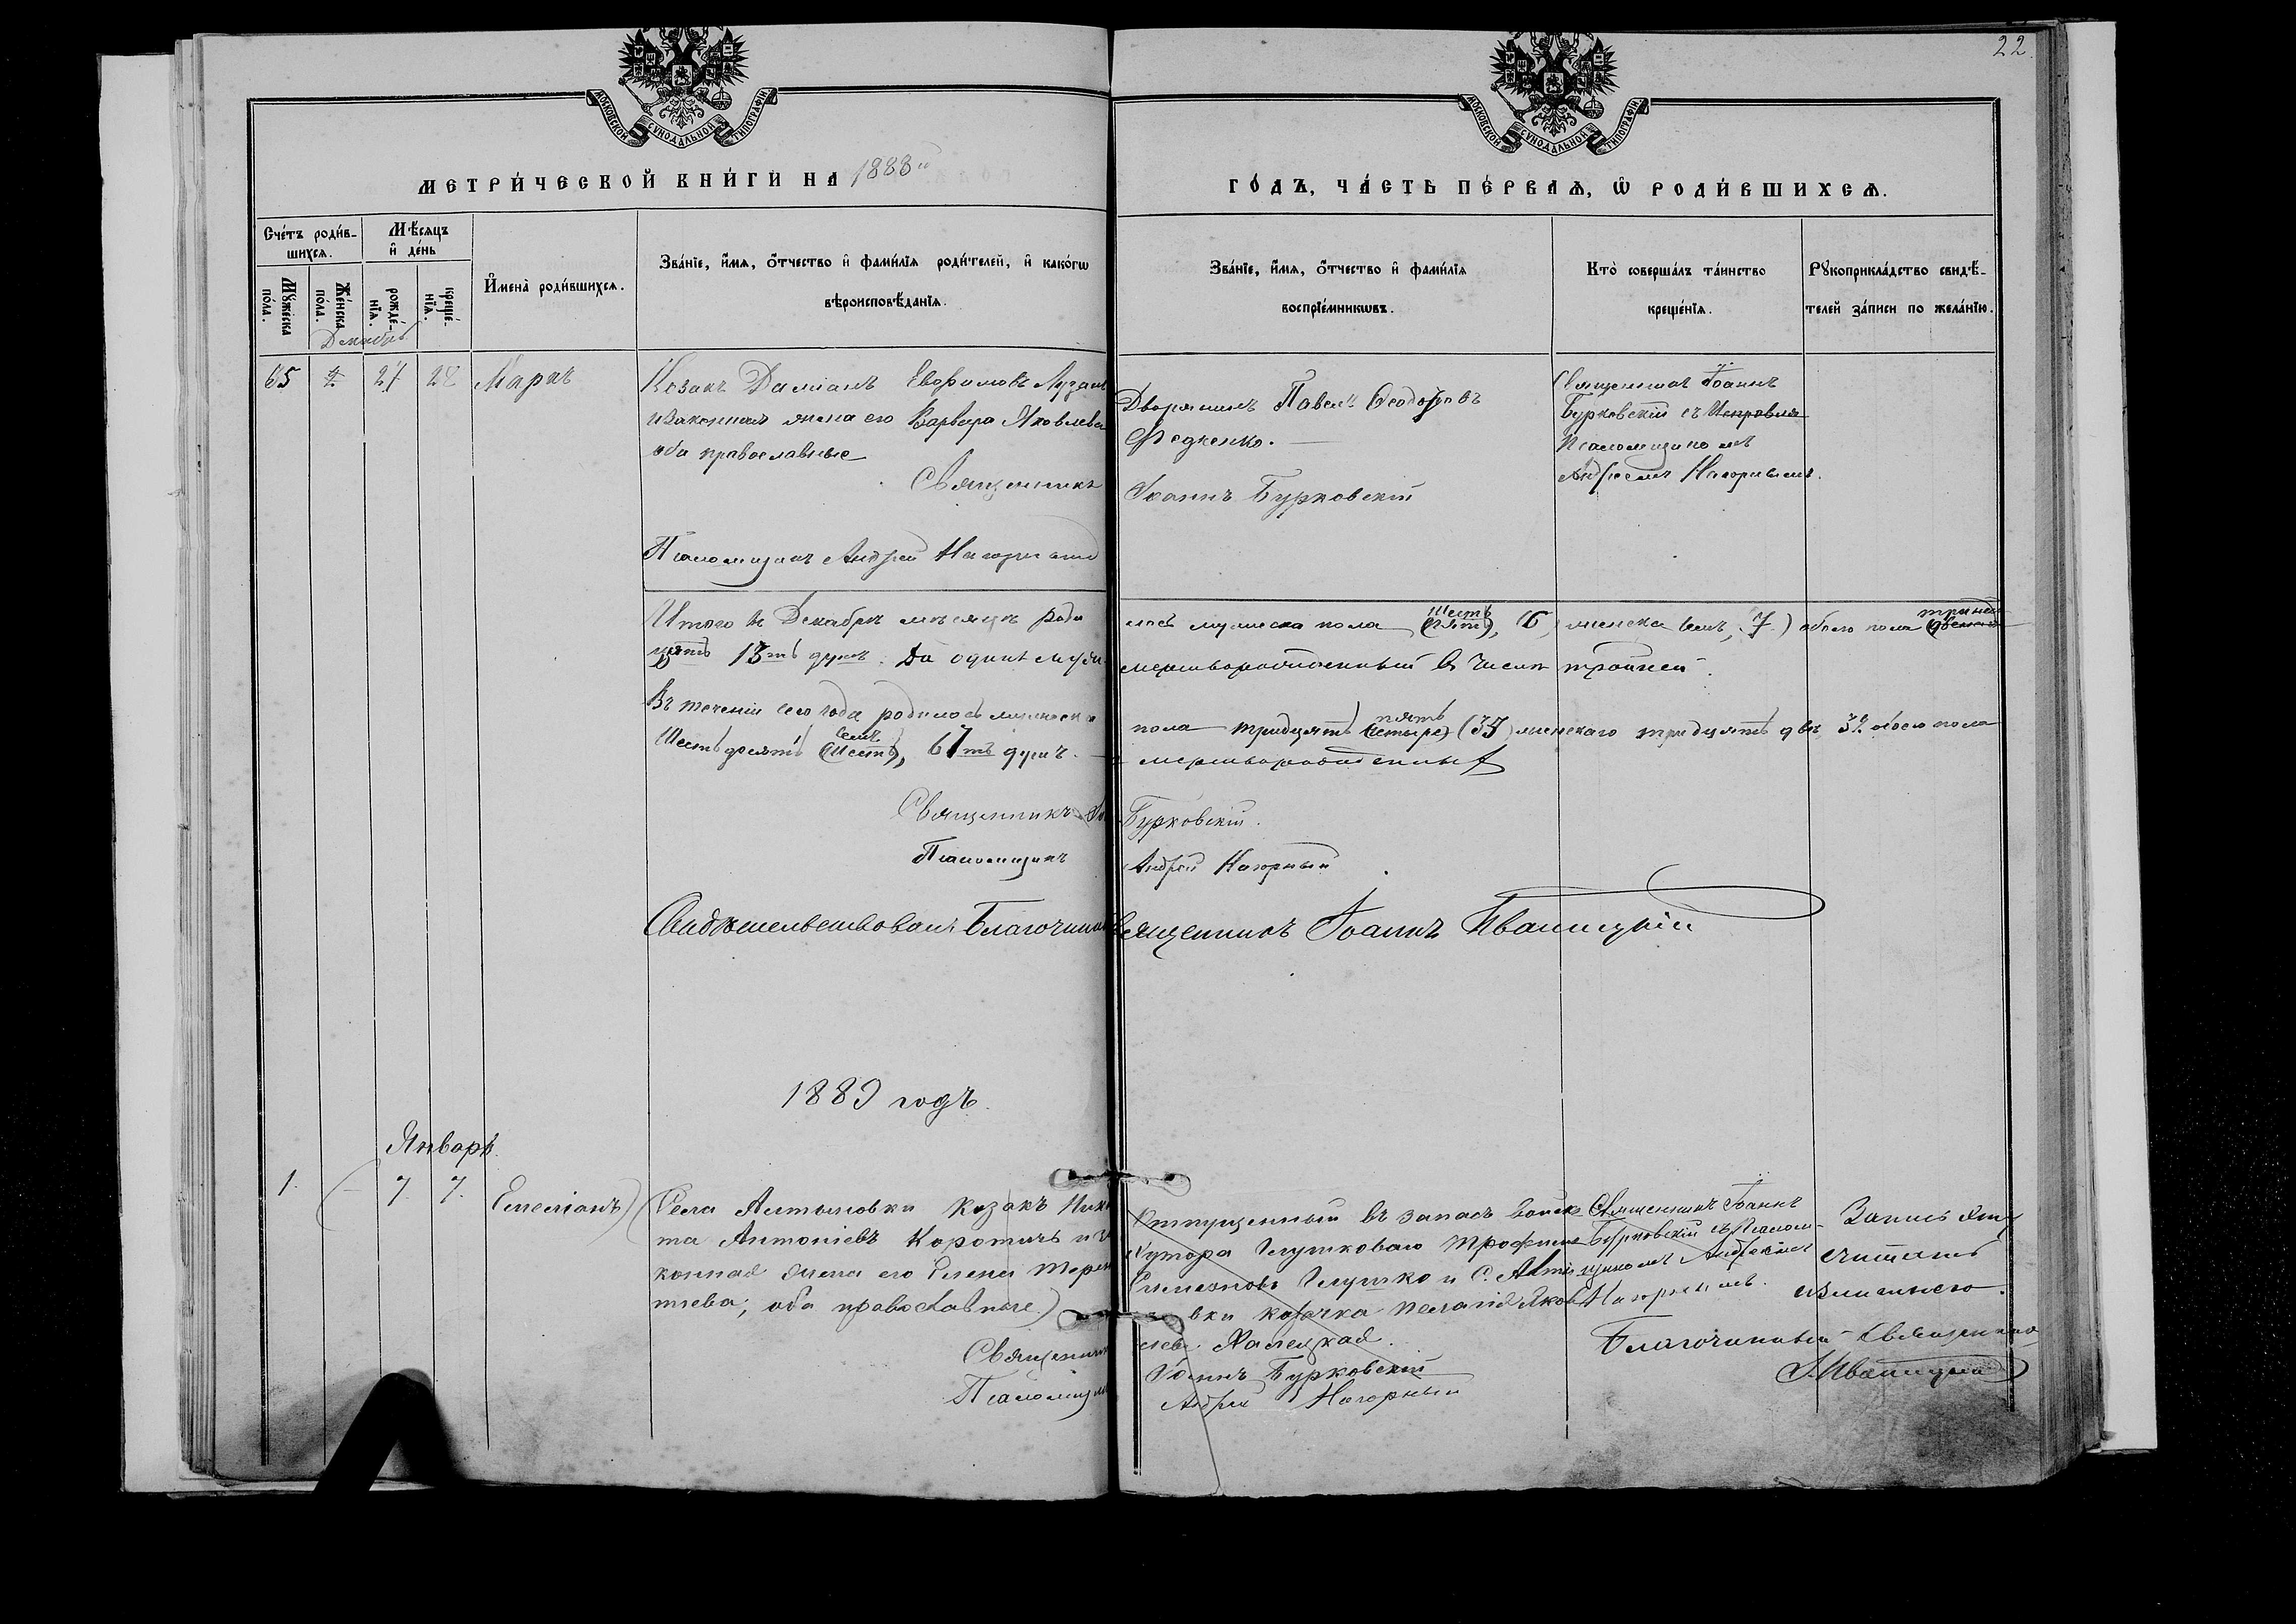 22
МОСКОВСКОЙ СУНОДАЛЬНОЙ ТИПОГРАФІИ
МОСКОВСКОЙ СУНОДАЛЬНОЙ ТИПОГРАФІИ
МЕТРИ́ЧЕСКОЙ КНИ́ГИ НА 1888й
ГО́ДЪ, ЧА́СТЬ ПЕ́РВАѦ, Ѡ РОДИ́ВШИХСѦ.
Сче́тъ роди́в-
шихсѧ.
Мꙋ́жеска по́ла.
Же́нска по́ла.
Мѣ́сѧцъ
и҆ де́нь
рожде́-
нїѧ.
креще́-
нїѧ.
И҆мена̀ роди́вшихсѧ.
Зва́нїе, и҆́мѧ, ѻ҆́тчество и҆ фами́лїѧ роди́телей, и҆ како́гѡ
вѣроисповѣ́данїѧ.
Зва́нїе, и҆́мѧ, ѻ҆́тчество и҆ фами́лїѧ
воспрїе́мникѡвъ.
Кто̀ соверша́лъ та́инство
креще́нїѧ.
Рꙋкоприкла́дство свидѣ́-
телей за́писи по жела́нїю.
Декабрь
65 27 28 Маркъ
Козакъ Даміанъ Евфимовъ
и законная жена его Варвара Яковлева
оба православные
Священникъ
Псаломщикъ Андрей Нагорный
Дворянинъ Павелъ Ѳеодоровъ
Федченко.
Іоаннъ Бурковскій
Священникъ Іоаннъ
Бурковскій съ
Псаломщикомъ
Андреемъ Нагорнымъ.
Итого въ Декабрѣ мѣсяцѣ роди
лось мужеска пола шесть (пять), 6, женска семь, 7) обоего пола тринад
цять 13ть душъ. Да одинъ
мертворожденный въ числѣ тройней.
Въ теченіи сего года родилось мужеска
пола тридцять пять (четыре) (35) женскаго тридцять двѣ 32 обоего пола
Шестьдесять семь (шесть), 67мь душъ.
мертворожденный
Священникъ
Бурковскій.
Псаломщикъ
Андрей Нагорный
Свидѣтельствовалъ Благочинный
Священникъ Іоаннъ Иваницкій
1889 годъ.
Январь.
1. - 7. 7. Емеліанъ)
(Села Алтыновки козакъ Ники
та Антоніевъ Коротичъ и за
конная жена его Елена Терен
тіева; оба православные.)
Священник
Псаломщик
Отпущенный въ запасъ войск
Хутора Глушковаго Трофимъ
Глушко и С. Алты
вки козачка Пелагія Яков
лева Халецкая.
Іоаннъ Бурковскій
Андрей Нагорный
Священникъ Іоаннъ
Бурковскій съ Псалом-
щикомъ Андреемъ
Нагорнымъ.
Запись эту
считать
излишнею.
Благочинный Священникъ
І. Иваницкій